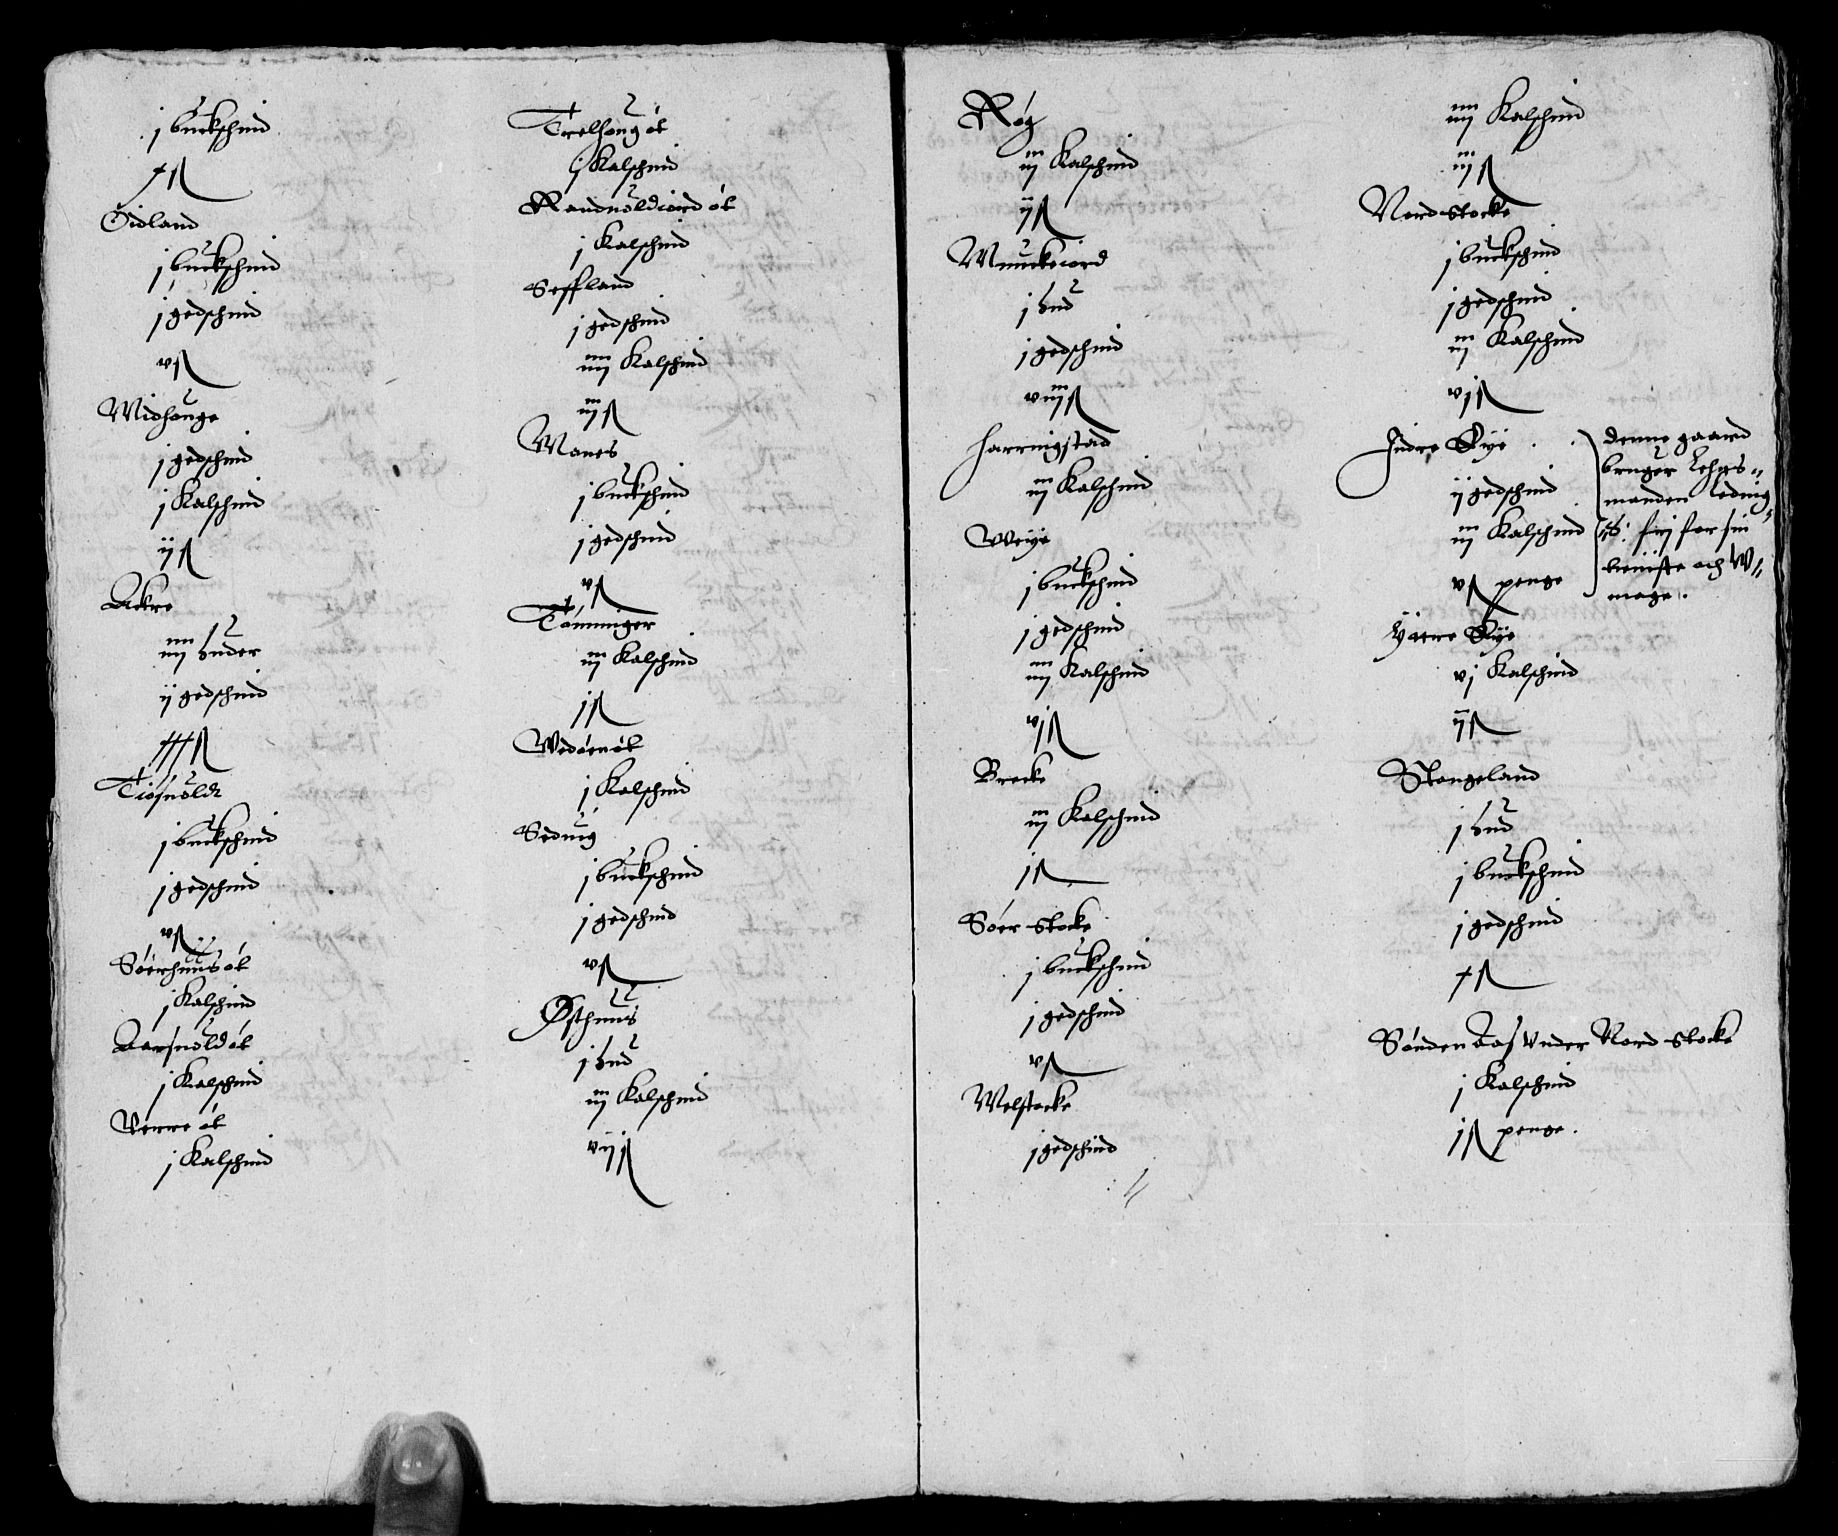 j buckschind
Øidland
j buckschind
j gedschind
v ß
Midhouge
j gedschind
j Kalschind
ij ß
Ackre
iiij huder
ij gedschind
j buckschind
j gedschind
v ß
Søerhuus øk
j Kalschind
Aarsuold øk
j Kalschind
Verre øk
j Kalschind
Troelhoug øk
j Kalschind
Randuoldiord øk
j Kalschind
Seffland
j gedschind
iiij Kalschind
iij ß
Manes
j buckschind
j gedschind
v ß
Tømminger
iij Kalschind
j ß
Wedøen øk
j Kalschind
Seduig
j buckschind
j gedschind
v ß
Østhuus
j hud
iij Kalschind
vij ß
Røg
iij Kalschind
ij ß
Munckeiord
j hud
j gedschind
viij ß
Harringstad
iij Kalschind
Weye
j buckschind
j gedschind
iiij Kalschind
vj ß
Brecke
iij Kalschind
j ß
Søer Stocke
j buckschind
j gedschind
v ß
Melstocke
j gedschind
iiij Kalschind
iij ß
Nord Stocke
j buckschind
j gedschind
iij Kalschind
vj ß
Indre Rye
ij gedschind
iij Kalschind
v ß penge
denne gaard
bruger Lehns
manden
frj for sin
tieniste och W
mage.
Yttre Rye
vj Kalschind
ij ß
Stangeland
j hud
j buckschind
j gedschind
Sønden Aas Vnder Nord Stocke
j Kalschind
j ß penge.